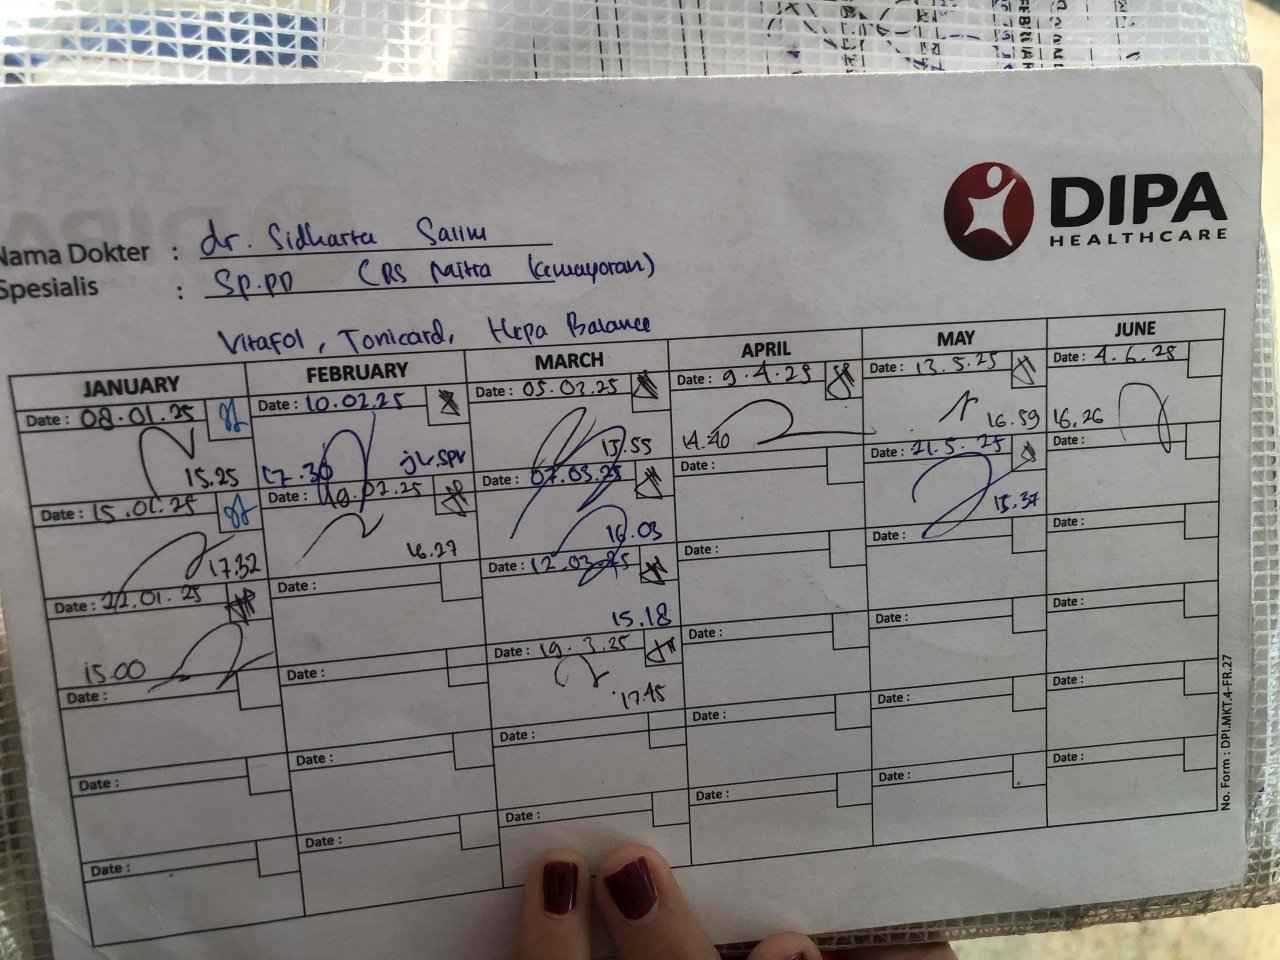 DIPA
HEALTHCARE
Nama Dokter : dr. Sidharta Salim
Spesialis : Sp.PD (RS Mitra Kemayoran)
Vitafol, Tonicard, Hepa Balance
JANUARY
Date : 08.01.25
15.25
Date : 15.01.25
17.32
Date : 22.01.25
15.00
Date :
Date :
Date :
FEBRUARY
Date : 10.02.25
17.30
Date : 19.02.25
16.27
Date :
Date :
Date :
Date :
MARCH
Date : 05.03.25
15.55
Date : 07.03.25
16.03
Date : 12.03.25
15.18
Date : 19.3.25
17.45
Date :
Date :
APRIL
Date : 9.4.25
14.40
Date :
Date :
Date :
Date :
Date :
MAY
Date : 13.5.25
16.59
Date : 21.5.25
15.37
Date :
Date :
Date :
Date :
JUNE
Date : 4.6.25
16.26
Date :
Date :
Date :
Date :
Date :
No. Form : DPI.MKT.4-FR.27